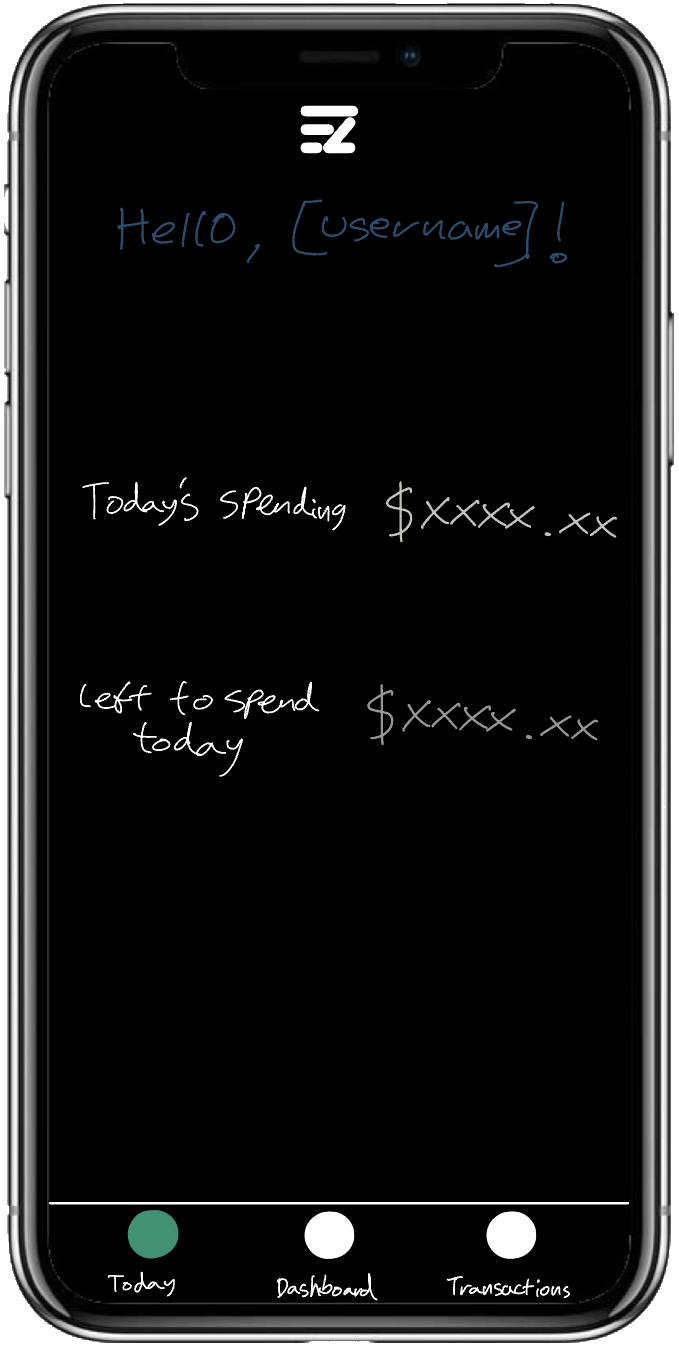 EZ
Hello, [username]!
Today's spending $xxxx.xx
Left to spend $xxxx.xx
today
Today Dashboard Transactions